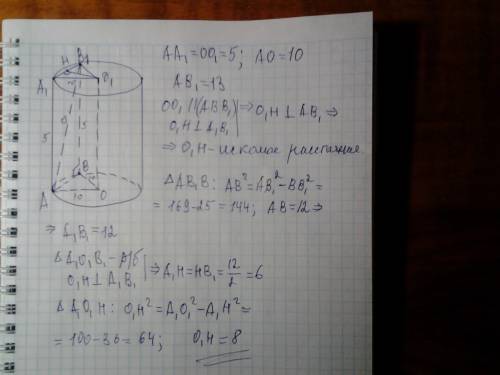 AA₁=OO₁=5; AO=10
AB₁=13
OO₁ || (ABB₁) | ⇒ O₁H ⊥ AB₁ ⇒
O₁H ⊥ A₁B₁ |
⇒ O₁H - искомое расстояние
△ AB₁B: AB²=AB₁²-BB₁²=
=169-25=144; AB=12 ⇒
⇒ A₁B₁=12
△ A₁O₁B₁ - р/б | ⇒ A₁H=HB₁=12/2=6
O₁H ⊥ A₁B₁ |
△ A₁O₁H: O₁H²=A₁O₁²-A₁H²=
=100-36=64; O₁H=8
A₁
H
B₁
O₁
5
5
A
B
10
O